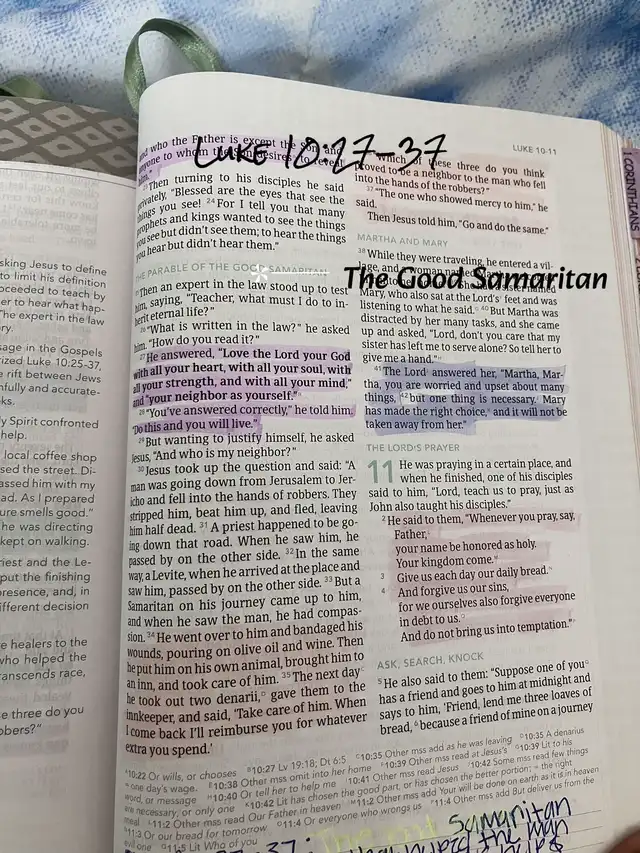 LUKE 10-11
LUKE 10:27-37
The Good Samaritan
and who the Father is except the Son, and
anyone to whom the Son desires to reveal
him."
23 Then turning to his disciples he said
privately, "Blessed are the eyes that see the
things you see! 24 For I tell you that many
prophets and kings wanted to see the things
you see but didn't see them; to hear the things
you hear but didn't hear them."
THE PARABLE OF THE GOOD SAMARITAN
25 Then an expert in the law stood up to test
him, saying, "Teacher, what must I do to in-
herit eternal life?"
26 "What is written in the law?" he asked
him. "How do you read it?"
27 He answered, "Love the Lord your God
with all your heart, with all your soul, with
all your strength, and with all your mind,"
and "your neighbor as yourself."
28 "You've answered correctly," he told him.
"Do this and you will live."
29 But wanting to justify himself, he asked
Jesus, "And who is my neighbor?"
30 Jesus took up the question and said: "A
man was going down from Jerusalem to Jer-
icho and fell into the hands of robbers. They
stripped him, beat him up, and fled, leaving
him half dead. 31 A priest happened to be go-
ing down that road. When he saw him, he
passed by on the other side. 32 In the same
way, a Levite, when he arrived at the place and
saw him, passed by on the other side. 33 But a
Samaritan on his journey came up to him,
and when he saw the man, he had compas-
sion. 34 He went over to him and bandaged his
wounds, pouring on olive oil and wine. Then
he put him on his own animal, brought him to
an inn, and took care of him. 35 The next day
he took out two denarii, gave them to the
innkeeper, and said, 'Take care of him. When
I come back I'll reimburse you for whatever
extra you spend.'
Which of these three do you think
proved to be a neighbor to the man who fell
into the hands of the robbers?"
37 "The one who showed mercy to him," he
said.
Then Jesus told him, "Go and do the same."
MARTHA AND MARY
38 While they were traveling, he entered a vil-
Mary, who also sat at the Lord's feet and was
listening to what he said. 40 But Martha was
distracted by her many tasks, and she came
up and asked, "Lord, don't you care that my
sister has left me to serve alone? So tell her to
give me a hand."
41 The Lord answered her, "Martha, Mar-
tha, you are worried and upset about many
things, 42 but one thing is necessary. Mary
has made the right choice, and it will not be
taken away from her."
THE LORD'S PRAYER
11 He was praying in a certain place, and
when he finished, one of his disciples
said to him, "Lord, teach us to pray, just as
John also taught his disciples."
2 He said to them, "Whenever you pray, say,
Father,
your name be honored as holy.
Your kingdom come.
3 Give us each day our daily bread.
4 And forgive us our sins,
for we ourselves also forgive everyone
in debt to us.
And do not bring us into temptation."
ASK, SEARCH, KNOCK
5 He also said to them: "Suppose one of you
has a friend and goes to him at midnight and
says to him, 'Friend, lend me three loaves of
bread, 6 because a friend of mine on a journey
10:22 Or wills, or chooses 10:27 Lv 19:18; Dt 6:5 10:35 Other mss add as he was leaving 10:35 A denarius
= one day's wage. 10:38 Other mss omit into her home 10:39 Other mss read at Jesus's 10:39 Lit to his
word, or message 10:40 Or tell her to help me 10:41 Other mss read Jesus 10:42 Some mss read few things
are necessary, or only one 10:42 Lit has chosen the good part, or has chosen the better portion; = the right
meal 11:2 Other mss read Our Father in heaven 11:2 Other mss add Your will be done on earth as it is in heaven
11:3 Or our bread for tomorrow 11:4 Or everyone who wrongs us 11:4 Other mss add But deliver us from the
evil one 11:5 Lit Who of you
Samaritan
sking Jesus to define
to limit his definition
oceeded to teach by
er to hear what hap-
he expert in the law
ry.
sage in the Gospels
rized Luke 10:25-37,
e rift between Jews
hfully and accurate-
ks.
y Spirit confronted
help.
local coffee shop
sed the street. Di-
assed him with my
ad. As I prepared
ure smells good."
he was directing
kept on walking.
riest and the Le-
put the finishing
presence, and, in
ifferent decision
e healers to the
who helped the
ranscends race,
e three do you
bbers?"
CORINTHIANS